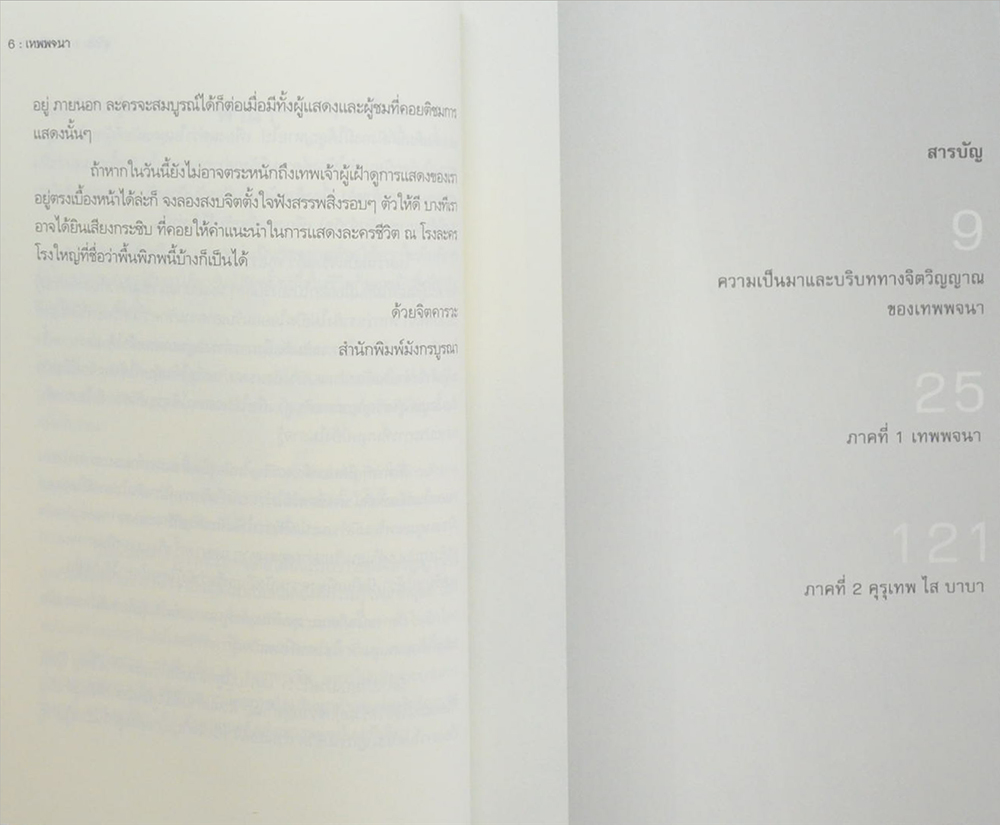 6 : เทพพจนา
อยู่ ภายนอก ละครจะสมบูรณ์ได้ก็ต่อเมื่อมีทั้งผู้แสดงและผู้ชมที่คอยติชมการ
แสดงนั้นๆ
ถ้าหากในวันนี้ยังไม่อาจตระหนักถึงเทพเจ้าผู้เฝ้าดูการแสดงของเรา
อยู่ตรงเบื้องหน้าได้ล่ะก็ จงลองสงบจิตตั้งใจฟังสรรพสิ่งรอบๆ ตัวให้ดี บางทีเรา
อาจได้ยินเสียงกระซิบ ที่คอยให้คำแนะนำในการแสดงละครชีวิต ณ โรงละคร
โรงใหญ่ที่ชื่อว่าพื้นพิภพนี้บ้างก็เป็นได้
ด้วยจิตคารวะ
สำนักพิมพ์มังกรบูรณา
สารบัญ
9
ความเป็นมาและบริบททางจิตวิญญาณ
ของเทพพจนา
25
ภาคที่ 1 เทพพจนา
121
ภาคที่ 2 คุรุเทพ ไส บาบา